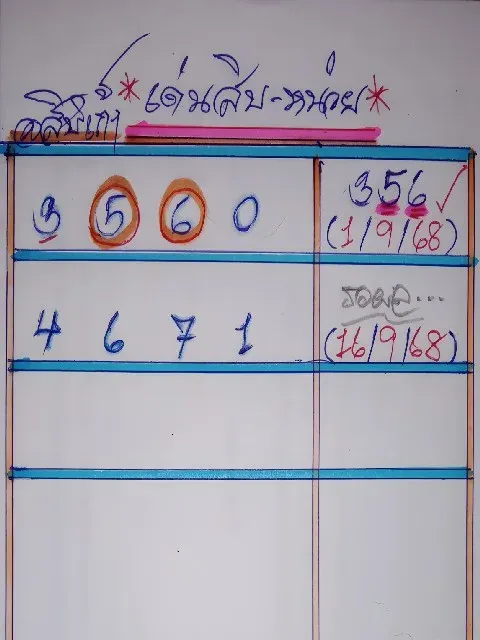 *เด่นสิบ-หน่วย*
3 5 6 0
356 ✓
(1/9/68)
4 6 7 1
รอผล...
(16/9/68)